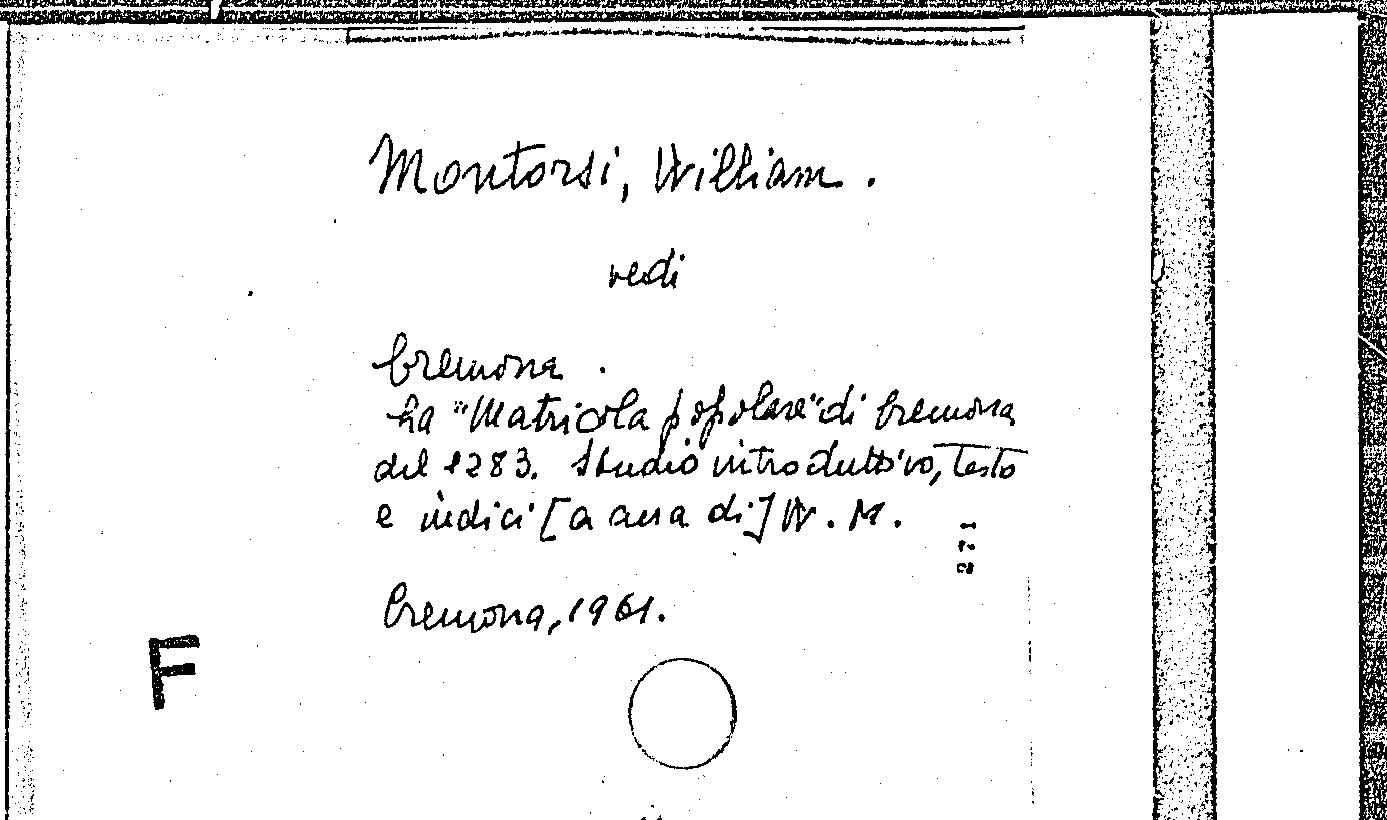 Montorsi, William.
vedi
Cremona.
La "Matricola popolare" di Cremona
del 1283. Studio introduttivo, testo
e indici [a cura di] W. M.
Cremona, 1961.
F